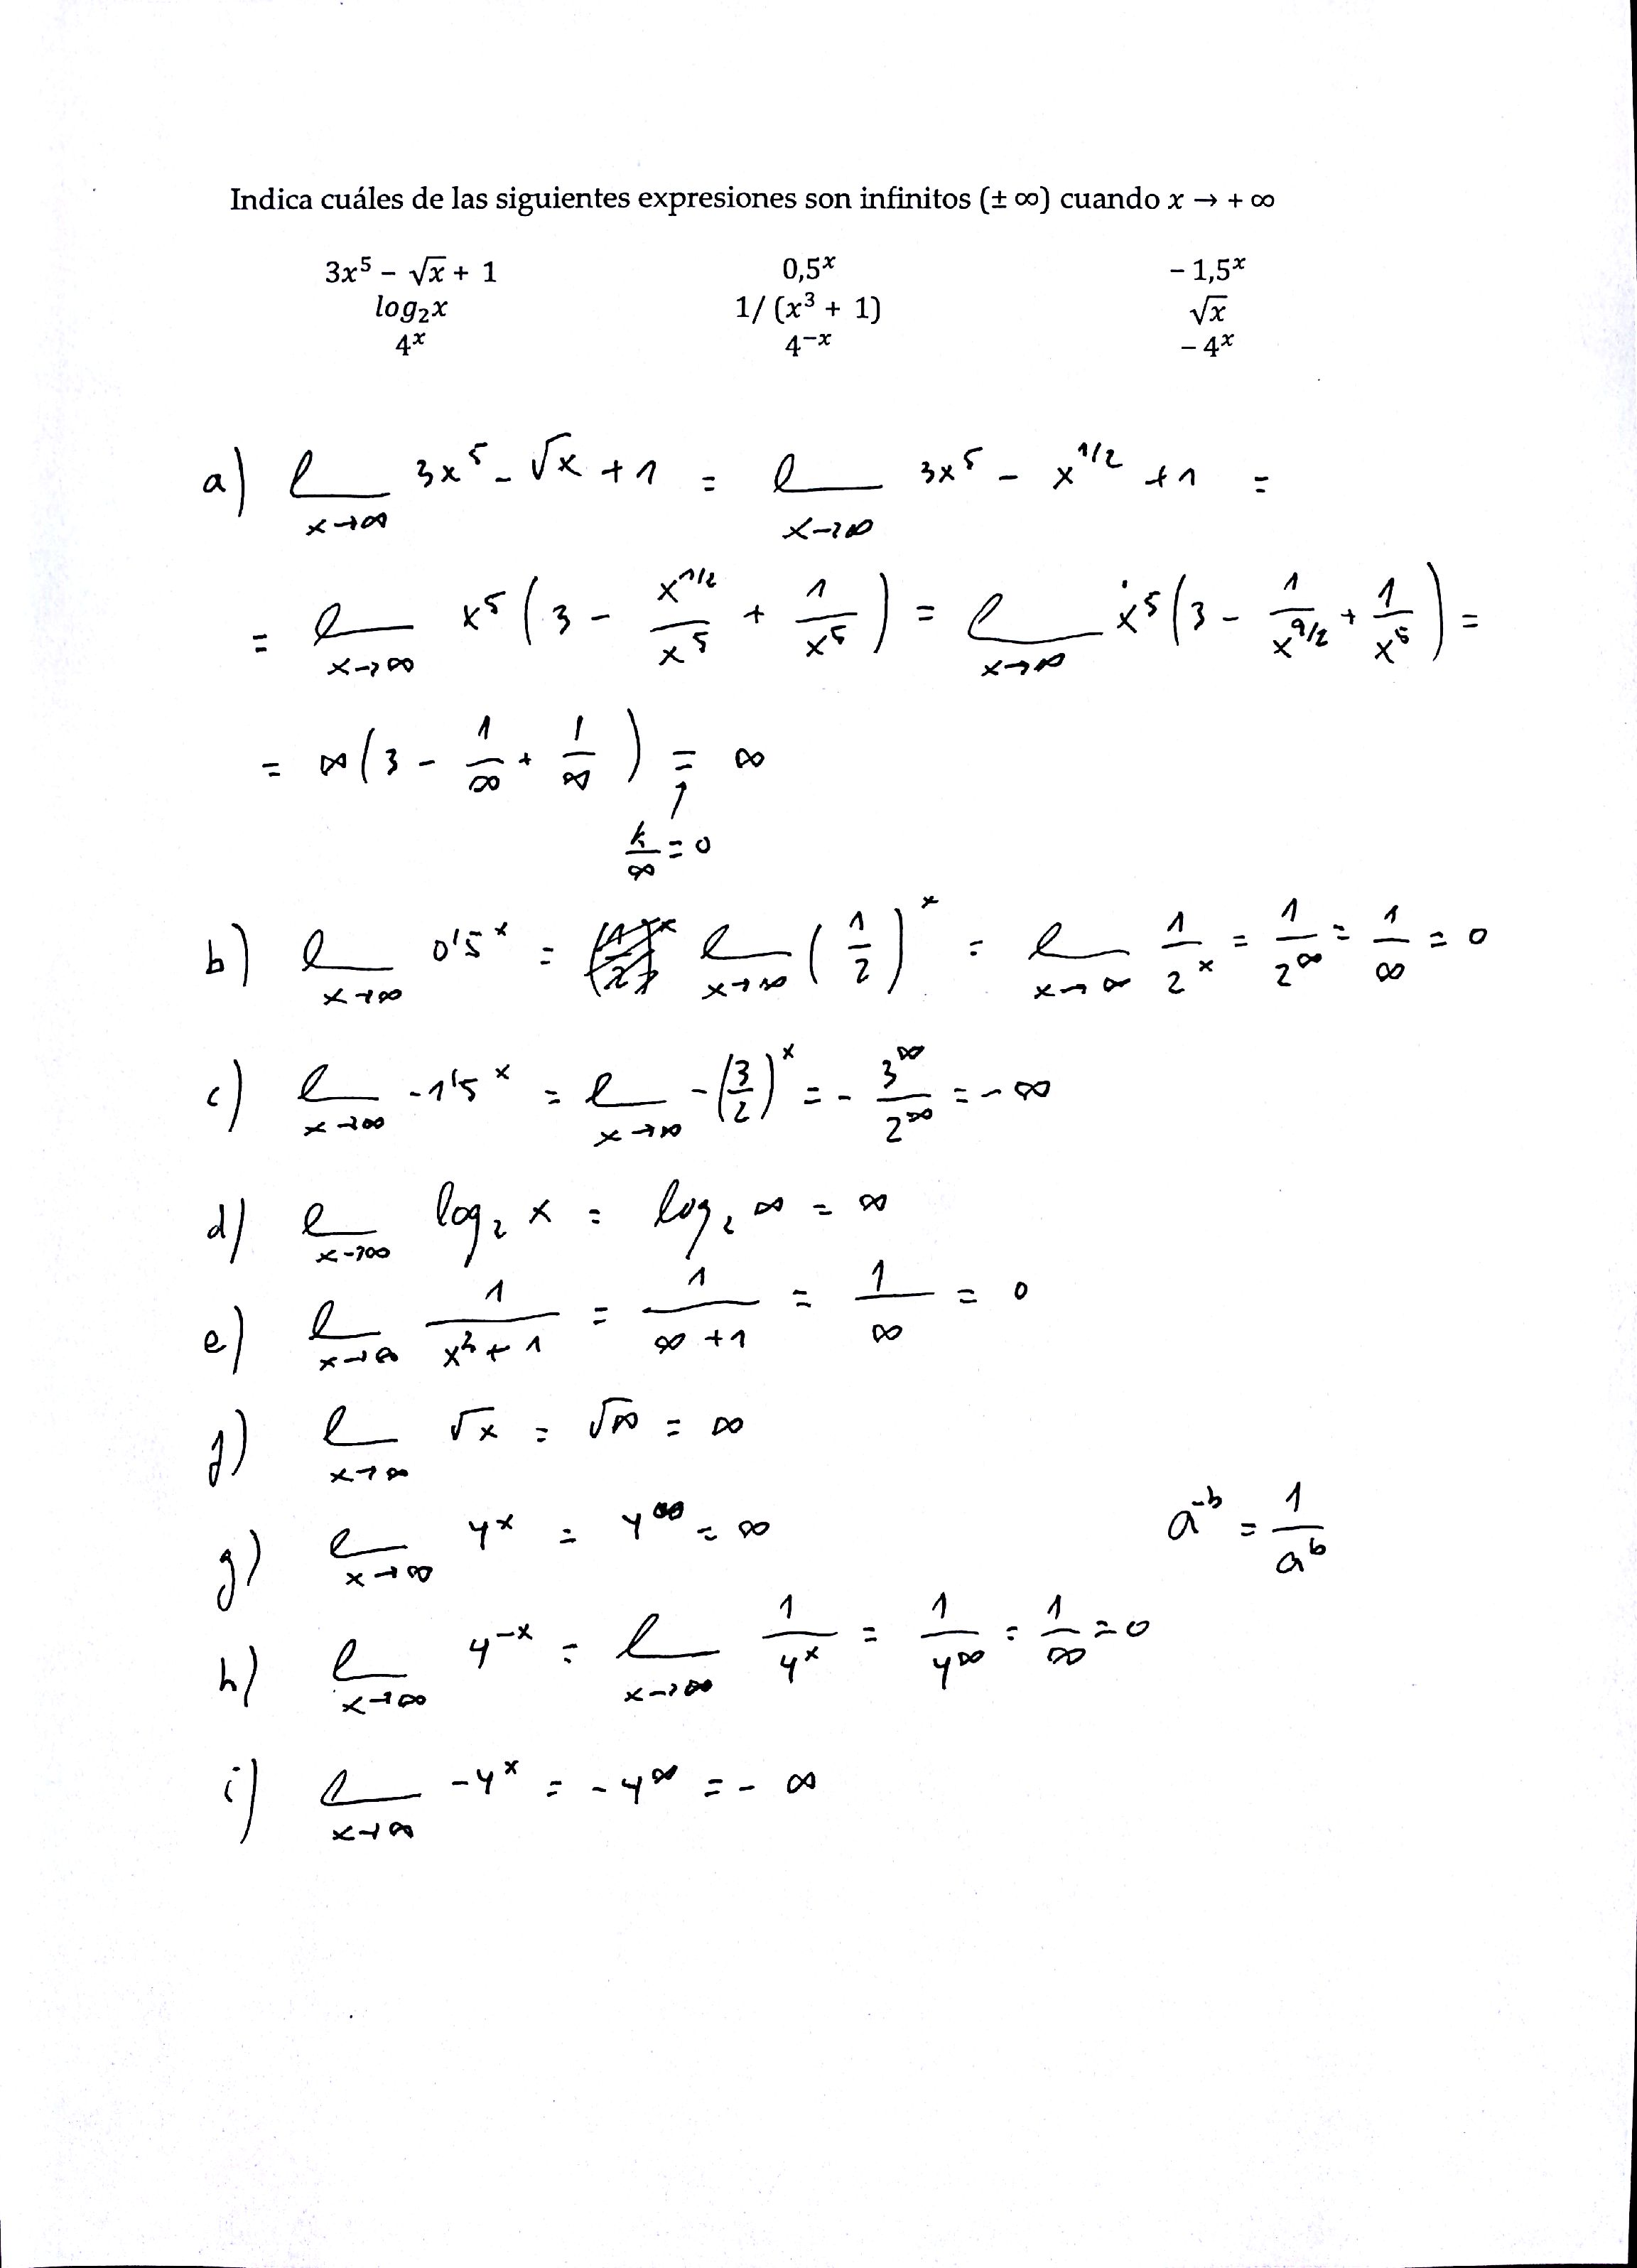 Indica cuáles de las siguientes expresiones son infinitos (± ∞) cuando x → + ∞
3x⁵ − √x + 1 0,5ˣ − 1,5ˣ
log₂x 1/ (x³ + 1) √x
4ˣ 4⁻ˣ − 4ˣ
a) l x→∞ 3x⁵ - √x + 1 = l x→∞ 3x⁵ - x^1/2 + 1 =
= l x→∞ x⁵ (3 - x^1/2/x⁵ + 1/x⁵) = l x→∞ x⁵ (3 - 1/x^9/2 + 1/x⁵) =
= ∞ (3 - 1/∞ + 1/∞) = ∞
k/∞ = 0
b) l x→∞ 0'5ˣ = l x→∞ (1/2)ˣ = l x→∞ 1/2ˣ = 1/2^∞ = 1/∞ = 0
c) l x→∞ -1'5ˣ = l x→∞ -(3/2)ˣ = - 3^∞/2^∞ = - ∞
d) l x→∞ log₂ x = log₂ ∞ = ∞
e) l x→∞ 1/x³ + 1 = 1/∞ + 1 = 1/∞ = 0
f) l x→∞ √x = √∞ = ∞
g) l x→∞ 4ˣ = 4^∞ = ∞
a^-b = 1/a^b
h) l x→∞ 4^-x = l x→∞ 1/4ˣ = 1/4^∞ = 1/∞ = 0
i) l x→∞ -4ˣ = -4^∞ = - ∞